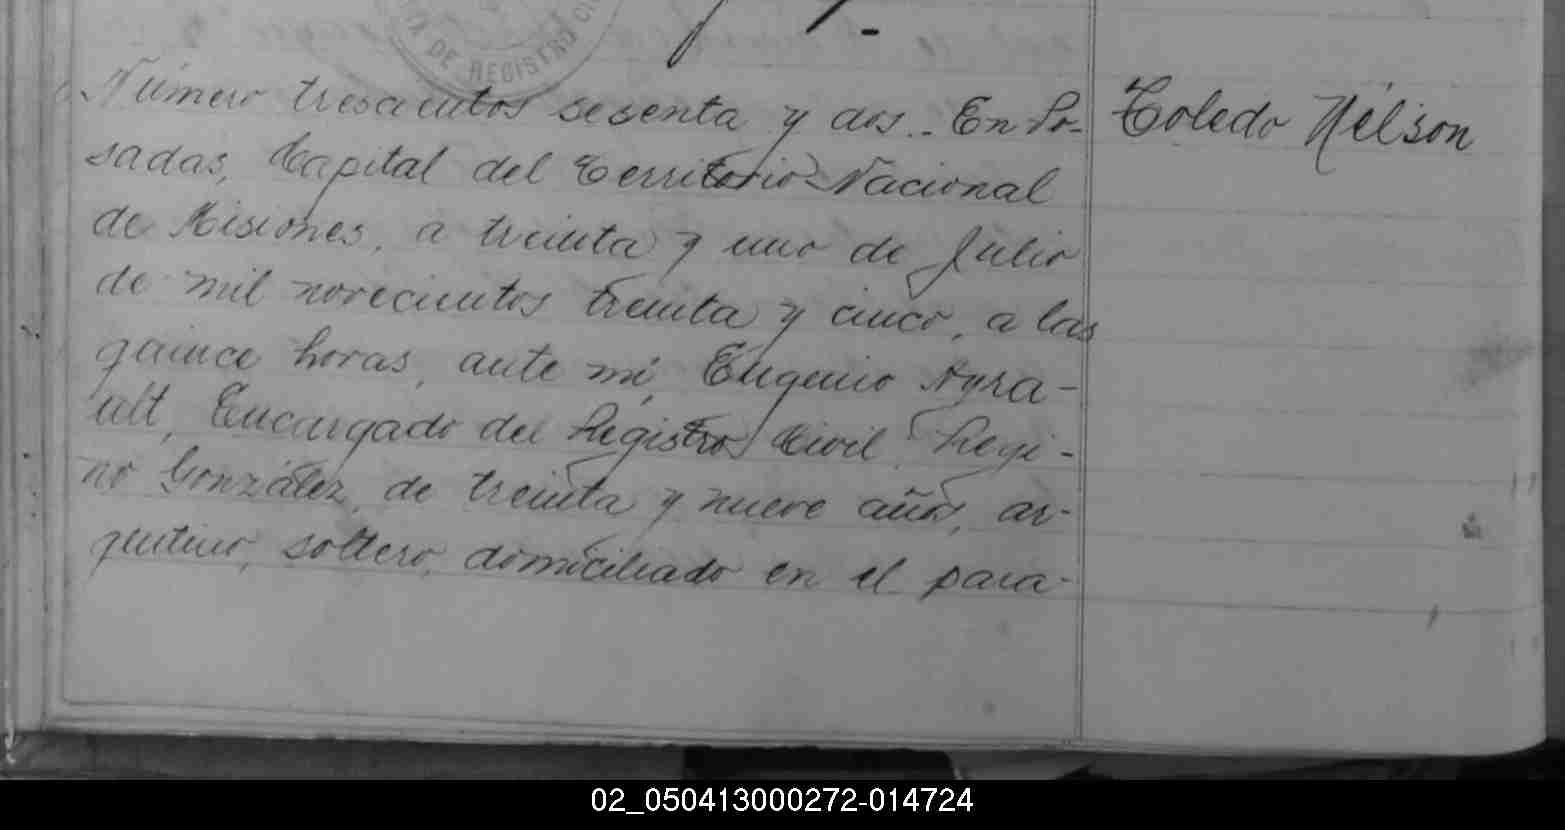 DE REGISTRO CI
Número trescientos sesenta y dos.- En Po-
sadas, Capital del Territorio Nacional
de Misiones, a treinta y uno de Julio
de mil novecientos treinta y cinco, a las
quince horas, ante mí, Eugenio Ayra-
ult, Encargado del Registro Civil, Regi-
no González, de treinta y nueve años, ar-
gentino, soltero, domiciliado en el para-
Toledo Nélson
02_050413000272-014724